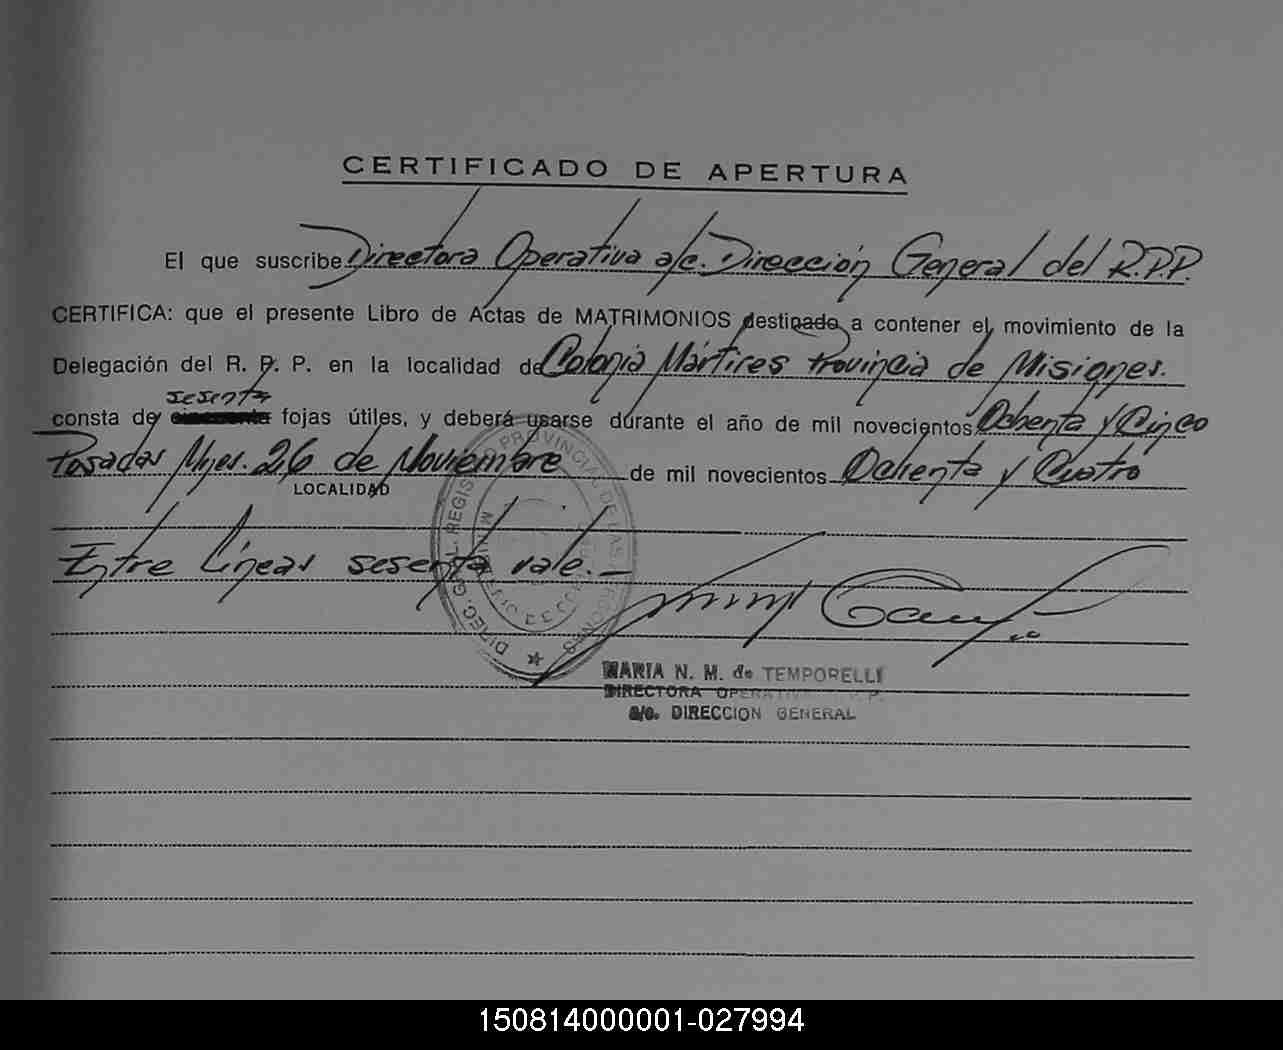 CERTIFICADO DE APERTURA
El que suscribe Directora Operativa a/c. Dirección General del R.P.P.
CERTIFICA: que el presente Libro de Actas de MATRIMONIOS destinado a contener el movimiento de la
Delegación del R. P. P. en la localidad de Colonia Mártires Provincia de Misiones.
sesenta
consta de cincuenta fojas útiles, y deberá usarse durante el año de mil novecientos Ochenta y Cinco
Posadas Mnes. 26 de Noviembre de mil novecientos Ochenta y Cuatro
LOCALIDAD
Entre Líneas sesenta vale.-
DIREC. GRAL. REGIST. PROVINCIAL DE LAS PERSONAS
MARIA N. M. de TEMPORELLI
DIRECTORA OPERATIVA R. P. P.
a/c. DIRECCION GENERAL
150814000001-027994